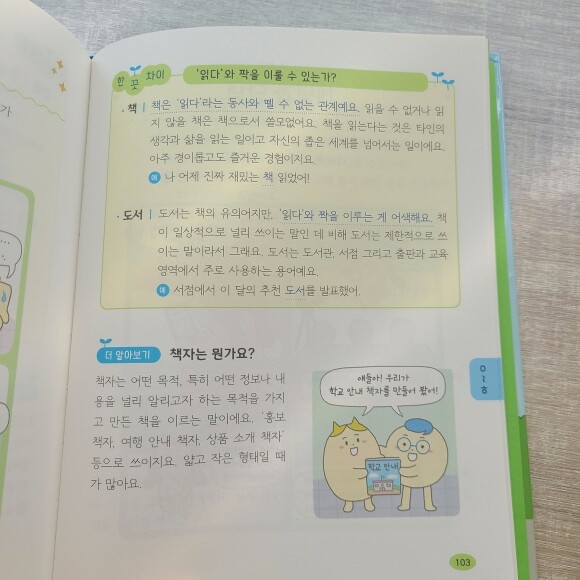 가
한 끗 차이
'읽다'와 짝을 이룰 수 있는가?
· 책 | 책은 '읽다'라는 동사와 뗄 수 없는 관계예요. 읽을 수 없거나 읽
지 않을 책은 책으로서 쓸모없어요. 책을 읽는다는 것은 타인의
생각과 삶을 읽는 일이고 자신의 좁은 세계를 넘어서는 일이에요.
아주 경이롭고도 즐거운 경험이지요.
예 나 어제 진짜 재밌는 책 읽었어!
· 도서 | 도서는 책의 유의어지만, '읽다'와 짝을 이루는 게 어색해요. 책
이 일상적으로 널리 쓰이는 말인 데 비해 도서는 제한적으로 쓰
이는 말이라서 그래요. 도서는 도서관, 서점 그리고 출판과 교육
영역에서 주로 사용하는 용어예요.
예 서점에서 이 달의 추천 도서를 발표했어.
더 알아보기 책자는 뭔가요?
책자는 어떤 목적, 특히 어떤 정보나 내
용을 널리 알리고자 하는 목적을 가지
고 만든 책을 이르는 말이에요. '홍보
책자, 여행 안내 책자, 상품 소개 책자'
등으로 쓰이지요. 얇고 작은 형태일 때
가 많아요.
얘들아! 우리가
학교 안내 책자를 만들어 봤어!
학교 안내
ㅇ~ㅎ
103